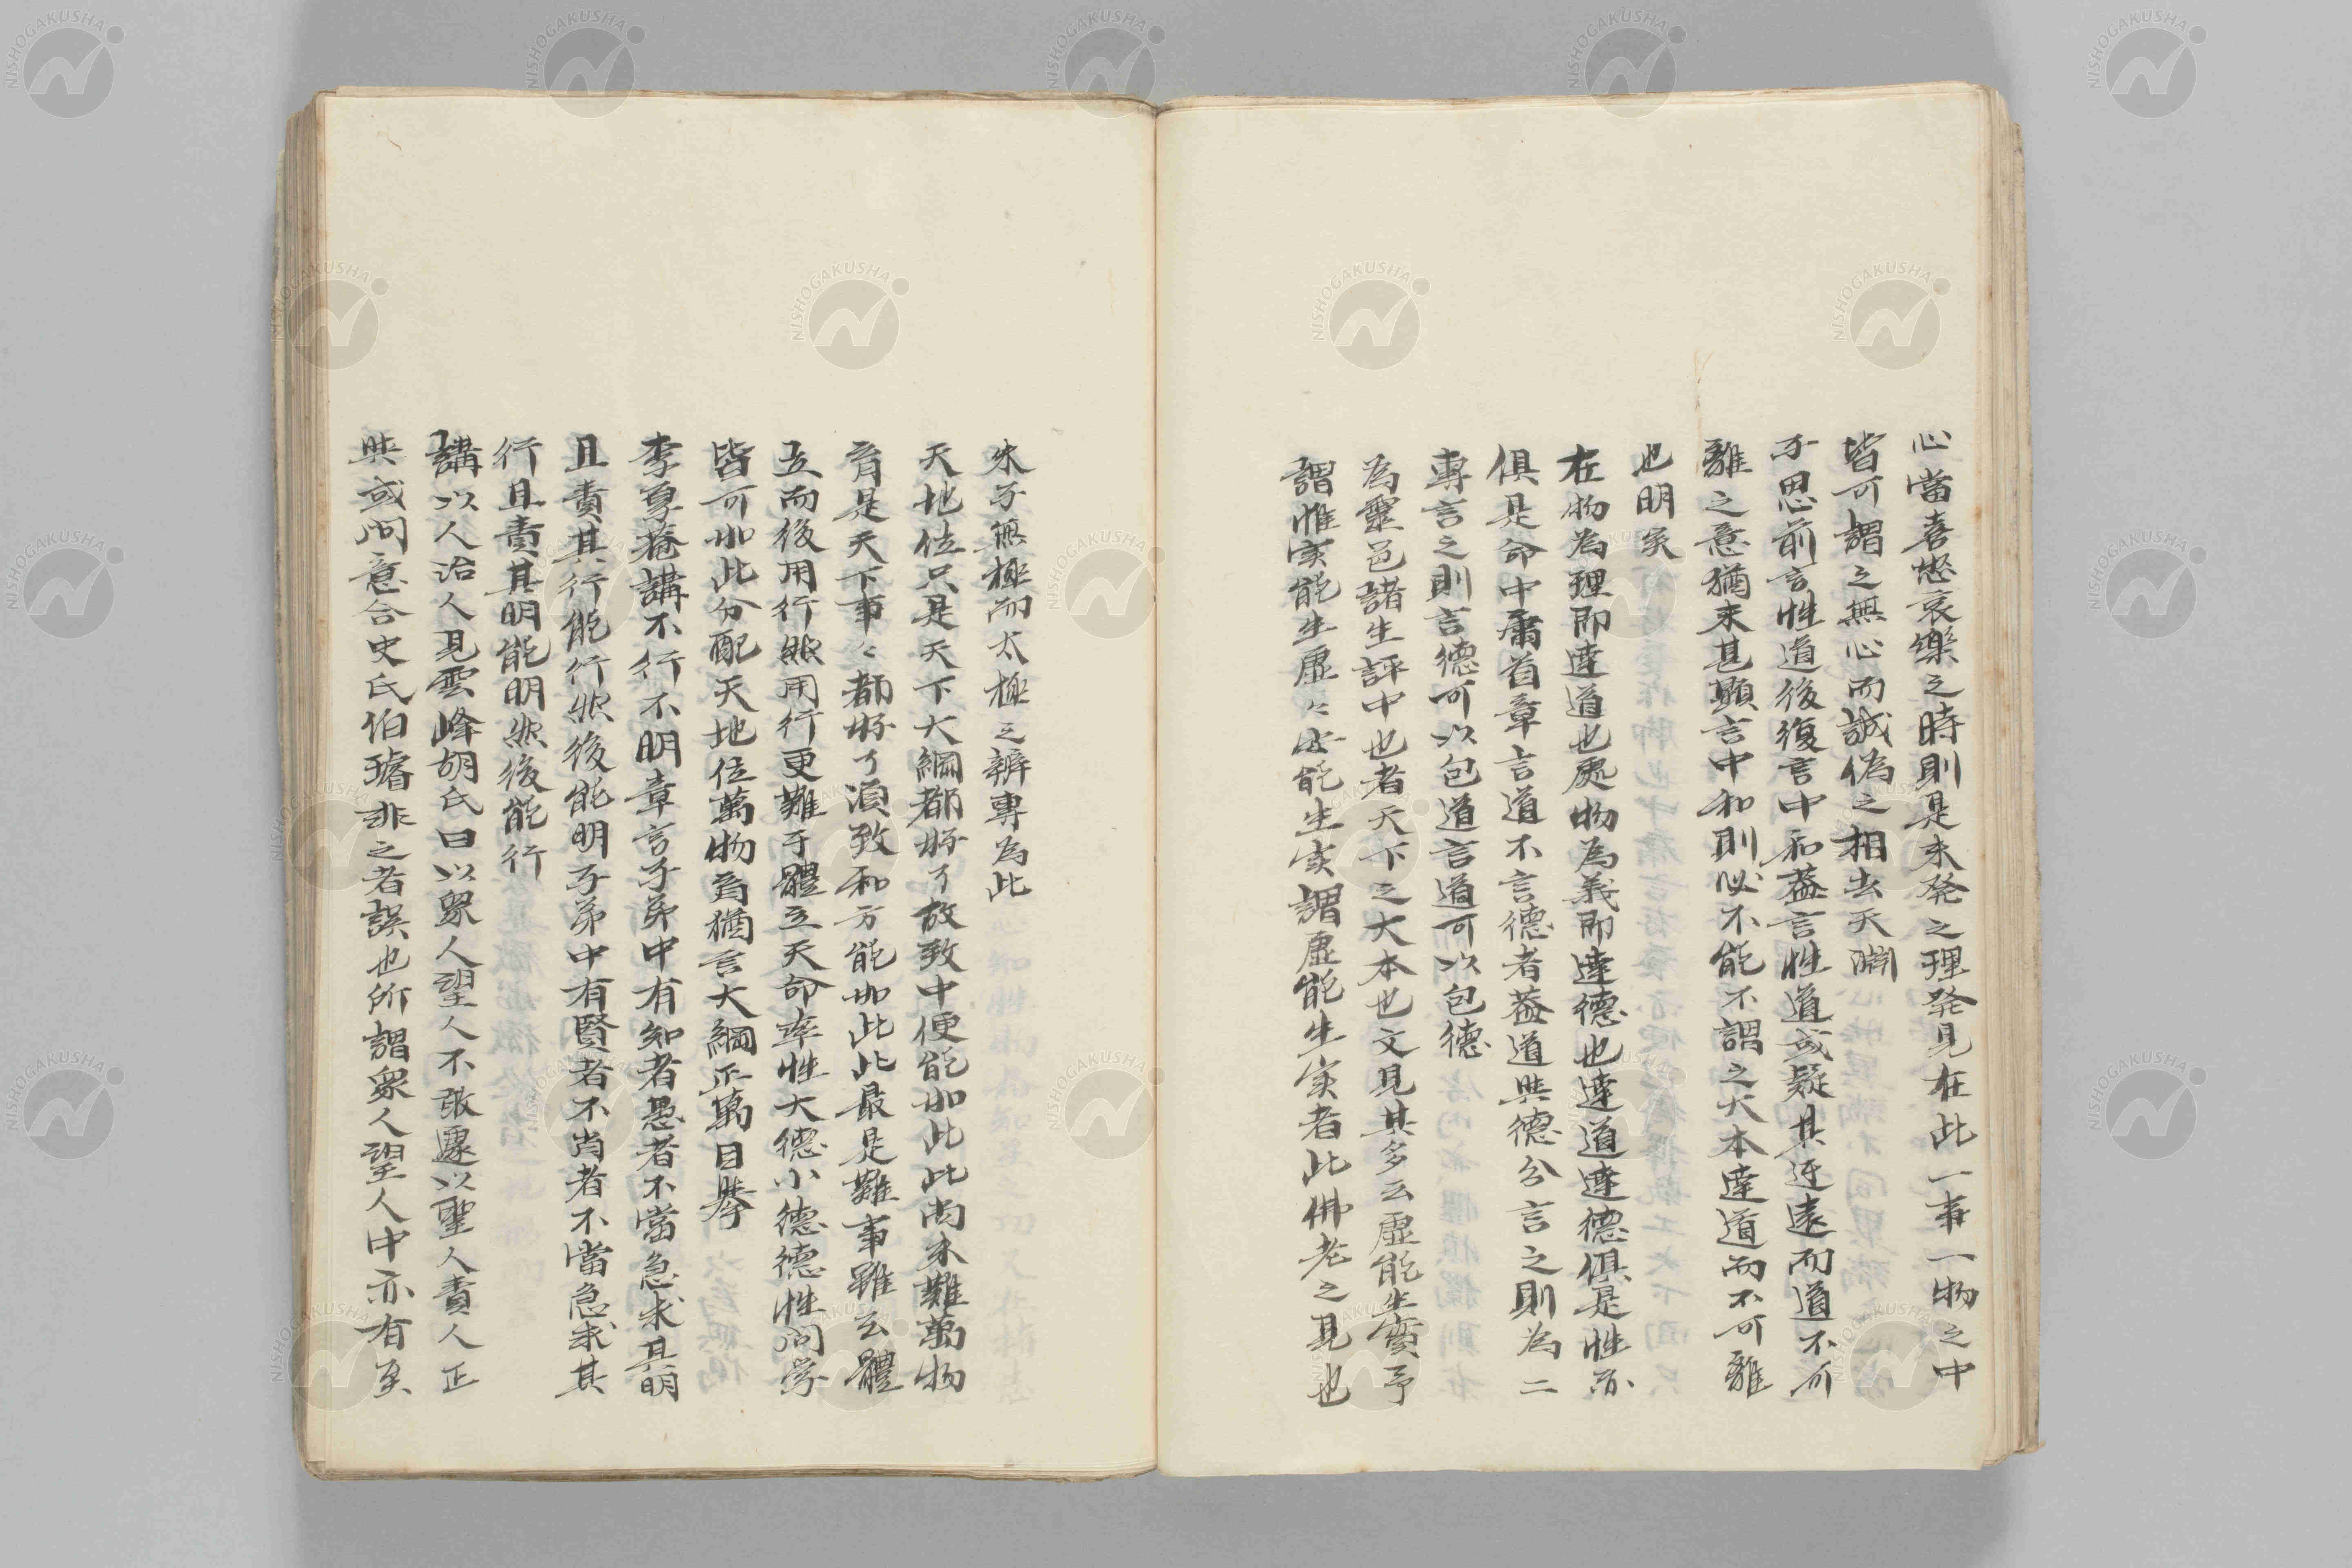 心當喜怒哀樂之時則是未発之理発見在此一事一物之中
皆可謂之無心而誠偽之相去天淵
子思前言性道後復言中和蓋言性道或疑其迂遠而道不可
離之意猶未甚顕言中和則必不能不謂之大本達道而不可離
也明矣
在物為理即達道也處物為義即達德也達道達德俱是性亦
俱是命中庸首章言道不言德者蓋道與德分言之則為二
專言之則言德可以包道言道可以包德
為靈邑諸生評中也者天下之大本也文見其多云虛能生實予
謂惟实能生虛々必能生实謂虛能生实者此佛老之見也
朱子無極而太極之辨專為此
天地位只是天下大綱都好了故致中便能如此此尚未難萬物
育是天下事々都好了須致和方能如此此最是難事雖云體
立而後用行然用行更難于體立天命率性大德小德德性問学
皆可如此分配天地位萬物育猶言大綱正萬目舉
季夏菴講不行不明章言子弟中有知者愚者不當急求其明
且責其行能行然後能明子弟中有賢者不肖者不當急求其
行且責其明能明然後能行
講以人治人見雲峰胡氏曰以衆人望人不敢遽以聖人責人正
與或問意合史氏伯璿非之者誤也所謂衆人望人中亦有至
NISHOGAKUSHA